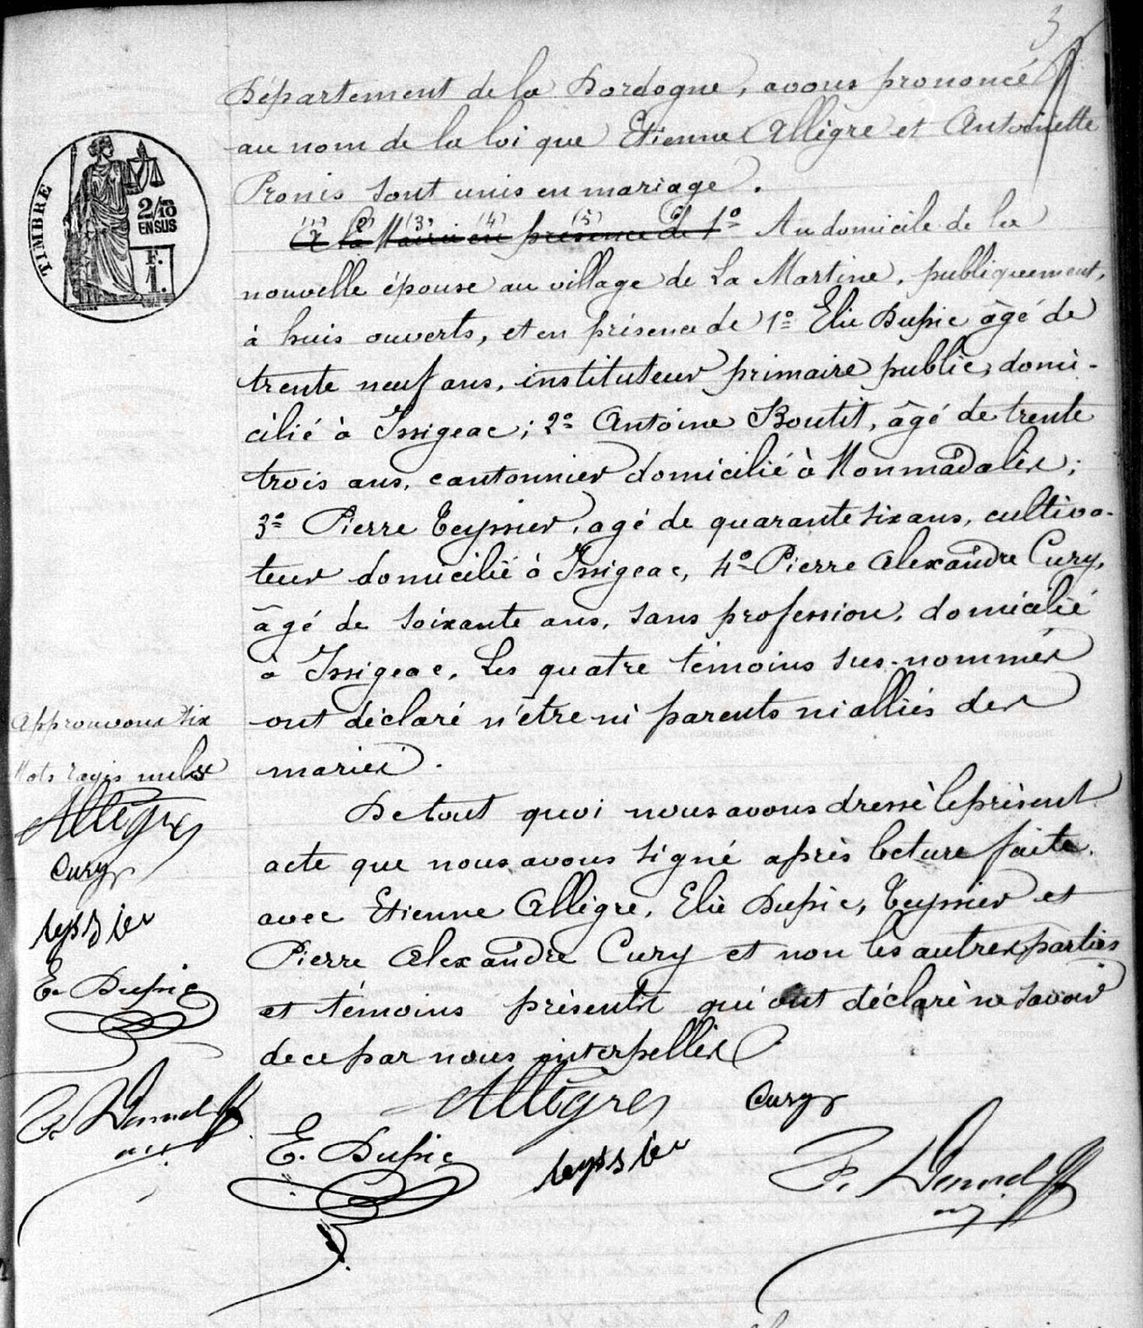 3
Département de la Dordogne, avons prononcé
au nom de la loi que Etienne Allègre et Antoinette
Pronis sont unis en mariage.
(1) (2) (3) (4) (5) (6)
A la Mairie en présence de 1º Au domicile de la
nouvelle épouse au village de La Martine, publiquement,
à huis ouverts, et en présence de 1º Elie Dupic âgé de
trente neuf ans, instituteur primaire public, domi-
cilié à Issigeac; 2º Antoine Boutit, âgé de trente
trois ans, cantonnier domicilié à Monmadalès;
3º Pierre Teyssier, agé de quarante six ans, cultiva-
teur domicilié à Issigeac, 4º Pierre Alexandre Cury,
âgé de soixante ans, sans profession, domicilié
à Issigeac. Les quatre témoins sus-nommés
ont déclaré n'être ni parents ni alliés des
mariés.
De tout quoi nous avons dressé le présent
acte que nous avons signé après lecture faite.
avec Etienne Allègre, Elie Dupic, Teyssier et
Pierre Alexandre Cury et non les autres parties
et témoins présents qui ont déclaré ne savoir
de ce par nous interpellés
Allègre Cury
E. Dupic teyssier
TIMBRE
2/10
EN SUS
F.
1.
Approuvons six
Mots rayés nuls
Allègre
Cury
teyssier
E. Dupic